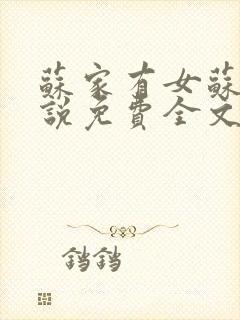 蘇家有女蘇
說免費全文
铛铛